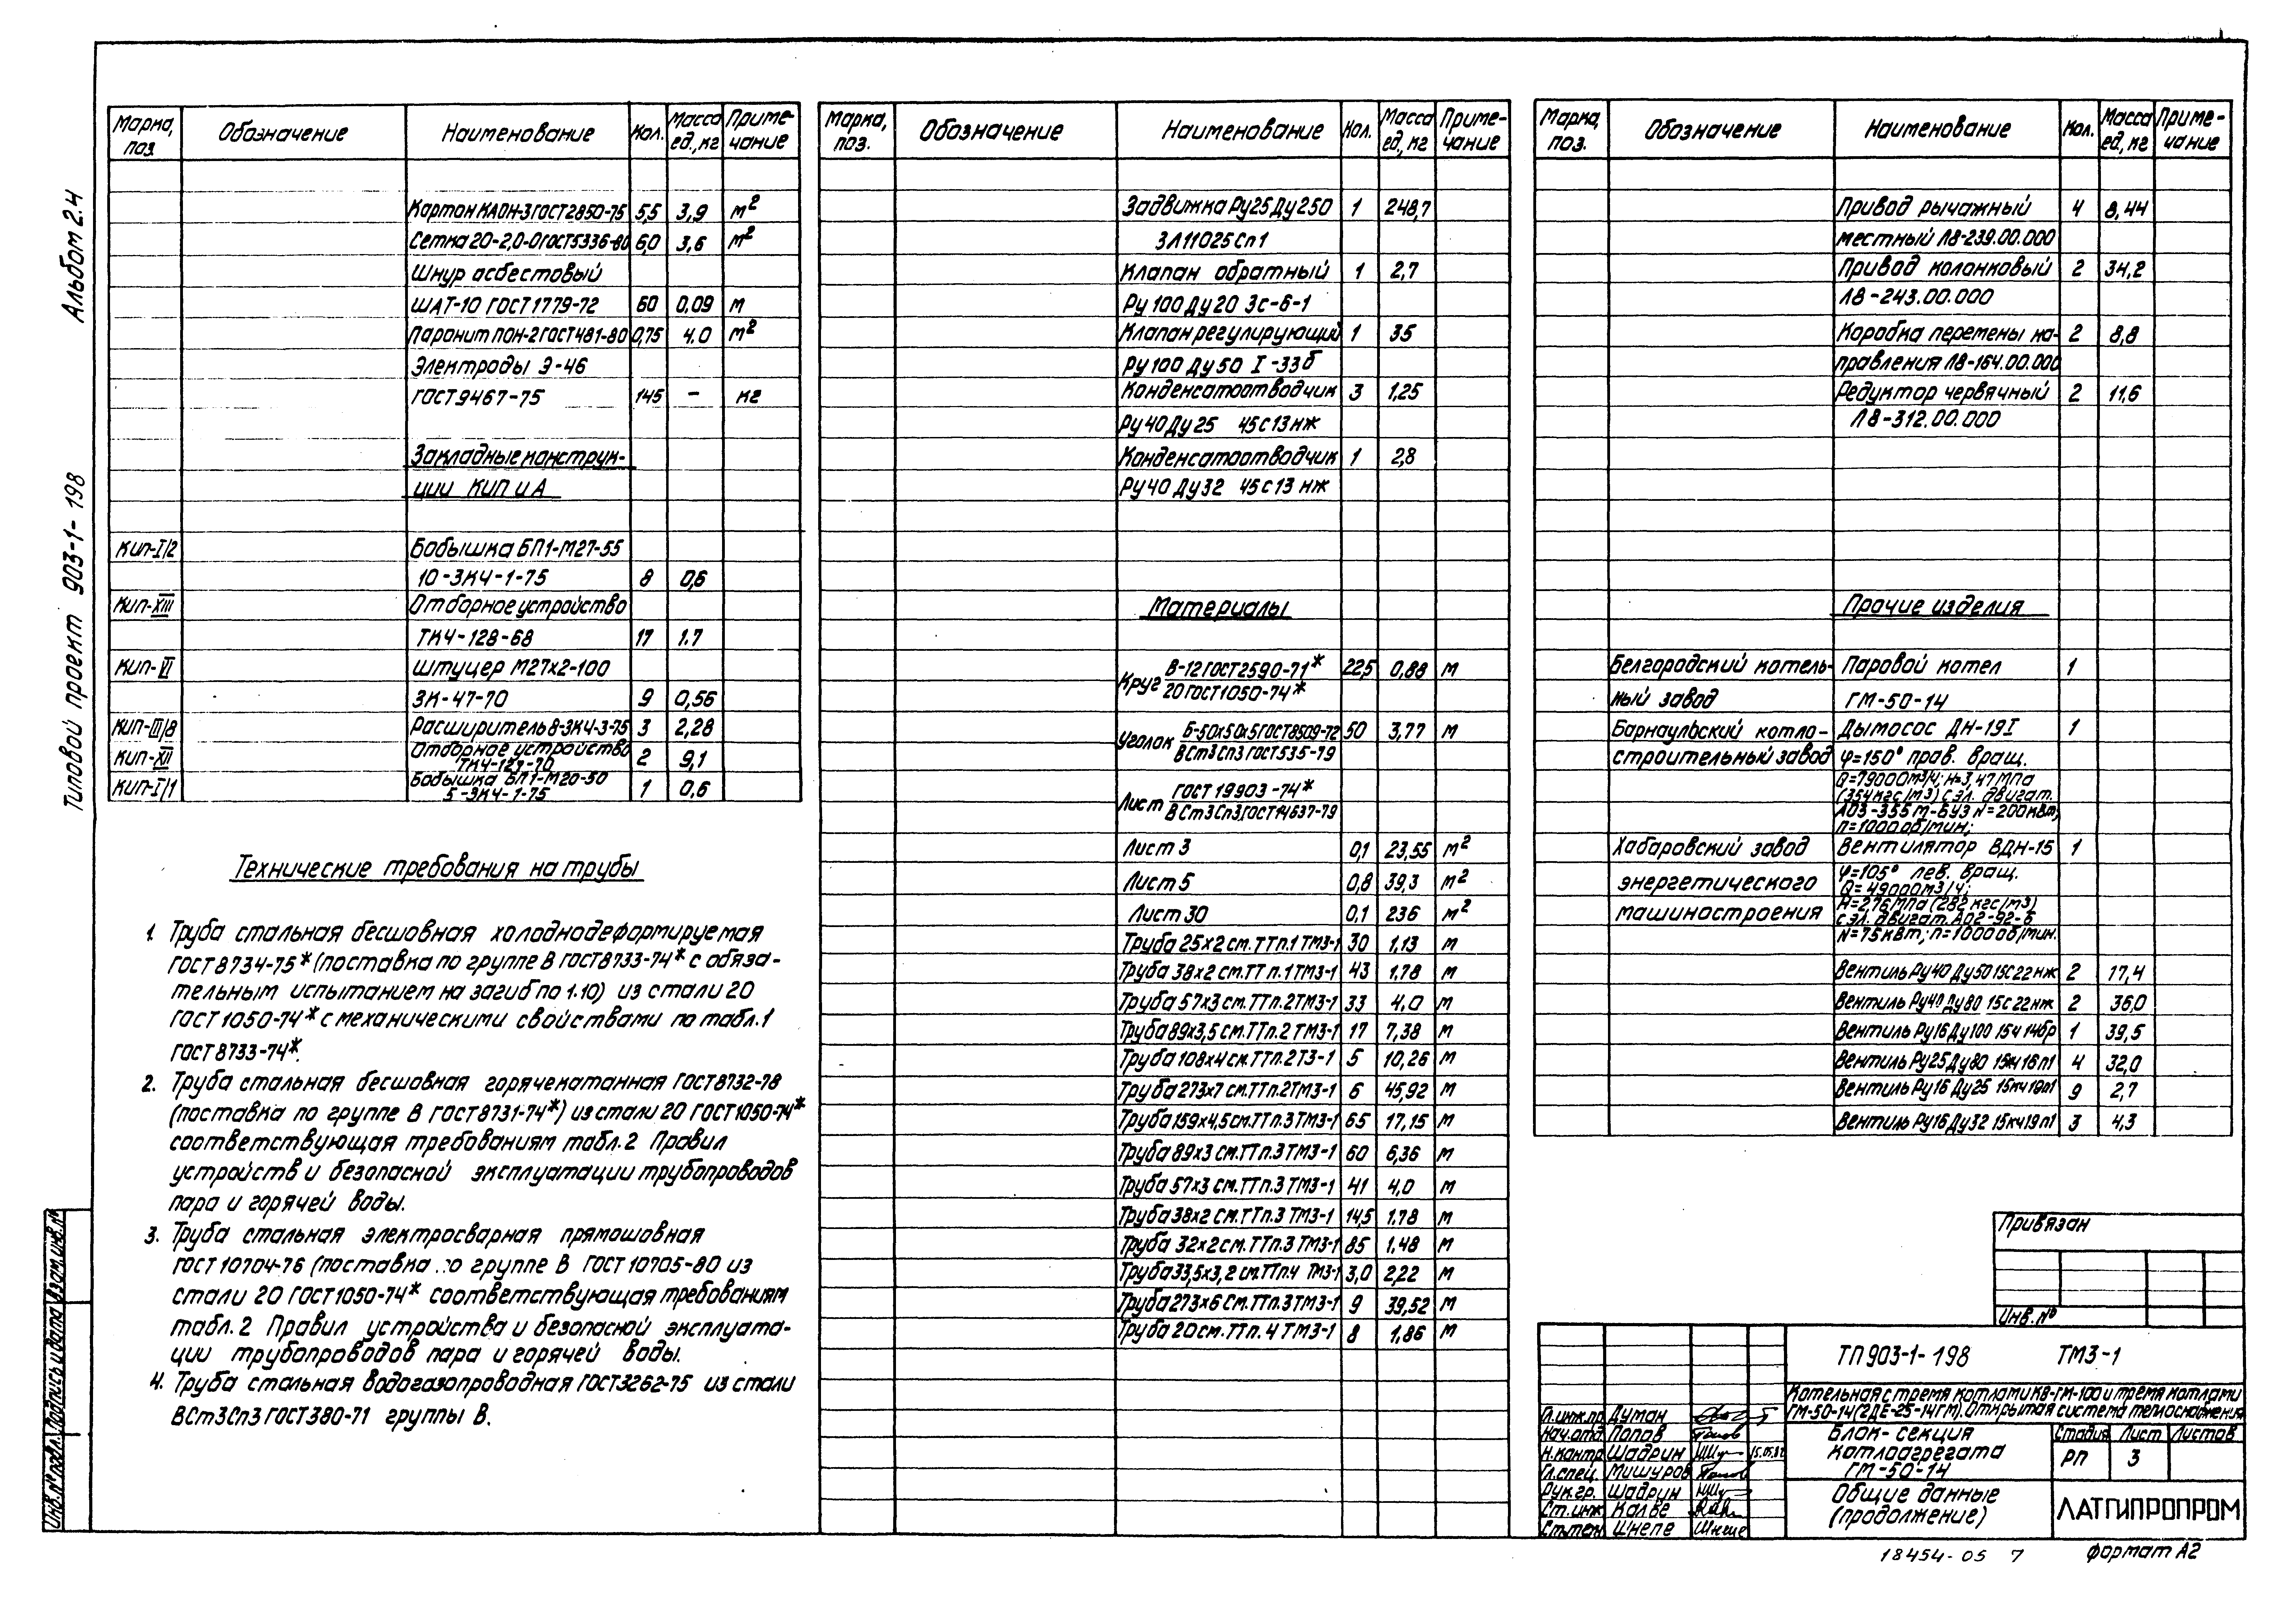 Альбом 2.4
Типовой проект 903-1-198
Марка, поз. Обозначение Наименование Кол. Масса ед., кг Приме-чание
Картон КАОН-3 ГОСТ 2850-75 5,5 3,9 м²
Сетка 20-2,0-0 ГОСТ 5336-80 6,0 3,6 м²
Шнур асбестовый
ШАТ-10 ГОСТ 1779-72 60 0,09 м
Паронит ПОН-2 ГОСТ 481-80 0,75 4,0 м²
Электроды Э-46
ГОСТ 9467-75 145 – кг
Закладные конструк-
ции КИП и А
КИП-I/2 Бобышка БП1-М27-55
10-3К4-1-75 8 0,6
КИП-XIII Отборное устройство
ТК4-128-68 17 1.7
КИП-VI Штуцер М27х2-100
3К-47-70 9 0,56
КИП-III/8 Расширитель 8-3К4-3-75 3 2,28
КИП-XII Отборное устройство
ТК4-123-70 2 9,1
КИП-I/1 Бобышка БП1-М20-50
5-3К4-1-75 1 0,6
Технические требования на трубы
1. Труба стальная бесшовная холоднодеформируемая
ГОСТ 8734-75* (поставка по группе В ГОСТ 8733-74* с обяза-
тельным испытанием на загиб по 1.10) из стали 20
ГОСТ 1050-74* с механическими свойствами по табл.1
ГОСТ 8733-74*.
2. Труба стальная бесшовная горячекатанная ГОСТ 8732-78
(поставка по группе В ГОСТ 8731-74*) из стали 20 ГОСТ 1050-74*
соответствующая требованиям табл.2 Правил
устройств и безопасной эксплуатации трубопроводов
пара и горячей воды.
3. Труба стальная электросварная прямошовная
ГОСТ 10704-76 (поставка по группе В ГОСТ 10705-80 из
стали 20 ГОСТ 1050-74* соответствующая требованиям
табл.2 Правил устройства и безопасной эксплуата-
ции трубопроводов пара и горячей воды.
4. Труба стальная водогазопроводная ГОСТ 3262-75 из стали
ВСт3Сп3 ГОСТ 380-71 группы В.
Марка, поз. Обозначение Наименование Кол. Масса ед, кг Приме-чание
Задвижка Ру25 Ду250 1 248,7
3Л11025Сп1
Клапан обратный 1 2,7
Ру 100 Ду 20 3с-6-1
Клапан регулирующий 1 35
Ру 100 Ду 50 I-33б
Конденсатоотводчик 3 1,25
Ру 40 Ду 25 45с13нж
Конденсатоотводчик 1 2,8
Ру 40 Ду 32 45с13нж
Материалы
Круг В-12 ГОСТ 2590-71* 22,5 0,88 м
20 ГОСТ 1050-74*
Уголок Б-50х50х5 ГОСТ 8509-72 50 3,77 м
ВСт3Сп3 ГОСТ 535-79
Лист ГОСТ 19903-74*
ВСт3Сп3 ГОСТ 14637-79
Лист 3 0,1 23,55 м²
Лист 5 0,8 39,3 м²
Лист 30 0,1 236 м²
Труба 25х2 см. ТТ п.1 ТМ3-1 30 1.13 м
Труба 38х2 см. ТТ п.1 ТМ3-1 43 1.78 м
Труба 57х3 см. ТТ п.2 ТМ3-1 33 4,0 м
Труба 89х3,5 см. ТТ п.2 ТМ3-1 17 7,38 м
Труба 108х4 см. ТТ п.2 Т3-1 5 10,26 м
Труба 273х7 см. ТТ п.2 ТМ3-1 6 45,92 м
Труба 159х4,5 см. ТТ п.3 ТМ3-1 65 17,15 м
Труба 89х3 см. ТТ п.3 ТМ3-1 60 6,36 м
Труба 57х3 см. ТТ п.3 ТМ3-1 41 4,0 м
Труба 38х2 см. ТТ п.3 ТМ3-1 14,5 1.78 м
Труба 32х2 см. ТТ п.3 ТМ3-1 85 1,48 м
Труба 33,5х3,2 см. ТТ п.4 ТМ3-1 3,0 2,22 м
Труба 273х6 см. ТТ п.3 ТМ3-1 9 39,52 м
Труба 20 см. ТТ п.4 ТМ3-1 8 1,86 м
Марка, поз. Обозначение Наименование Кол. Масса ед, кг Приме-чание
Привод рычажный 4 8,44
местный Л8-239.00.000
Привод колонковый 2 34,2
Л8-243.00.000
Коробка перемены на- 2 8,8
правления Л8-164.00.000
Редуктор червячный 2 11,6
Л8-312.00.000
Прочие изделия
Белгородский котель- Паровой котел 1
ный завод ГМ-50-14
Барнаульский котло- Дымосос ДН-19I 1
строительный завод φ=150° прав. вращ.
Q=79000м3/ч; H=3,47МПа
(354кгс/м3) с эл. двигат.
АО3-355М-6У3 N=200кВт;
n=1000об/мин;
Хабаровский завод Вентилятор ВДН-15 1
энергетического φ=105° лев. вращ.
Q=49000м3/ч;
машиностроения H=2,76МПа (282 кгс/м3)
с эл. двигат. АО2-92-6
N=75кВт; n=1000об/мин.
Вентиль Ру40 Ду50 15с22нж 2 17,4
Вентиль Ру40 Ду80 15с22нж 2 36,0
Вентиль Ру16 Ду100 15ч14бр 1 39,5
Вентиль Ру25 Ду80 15кч16п1 4 32,0
Вентиль Ру16 Ду25 15кч19п1 9 2,7
Вентиль Ру16 Ду32 15кч19п1 3 4,3
Привязан
Инв.№
ТП 903-1-198 ТМ3-1
Котельная с тремя котлами КВ-ГМ-100 и тремя котлами
ГМ-50-14(2ДЕ-25-14ГМ). Открытая система теплоснабжения
Гл.инж.пр Думан
Нач.отд. Попов
Н.контр Шадрин 15.05.82
Гл.спец. Мишуров
Рук.гр. Шадрин
Ст.инж Калве
Ст.техн Шнепе
Блок-секция
котлоагрегата
ГМ-50-14
Стадия Лист Листов
РП 3
Общие данные
(продолжение)
ЛАТГИПРОПРОМ
18454-05 7
формат А2
Инв.№ подл. Подпись и дата Взам.инв.№